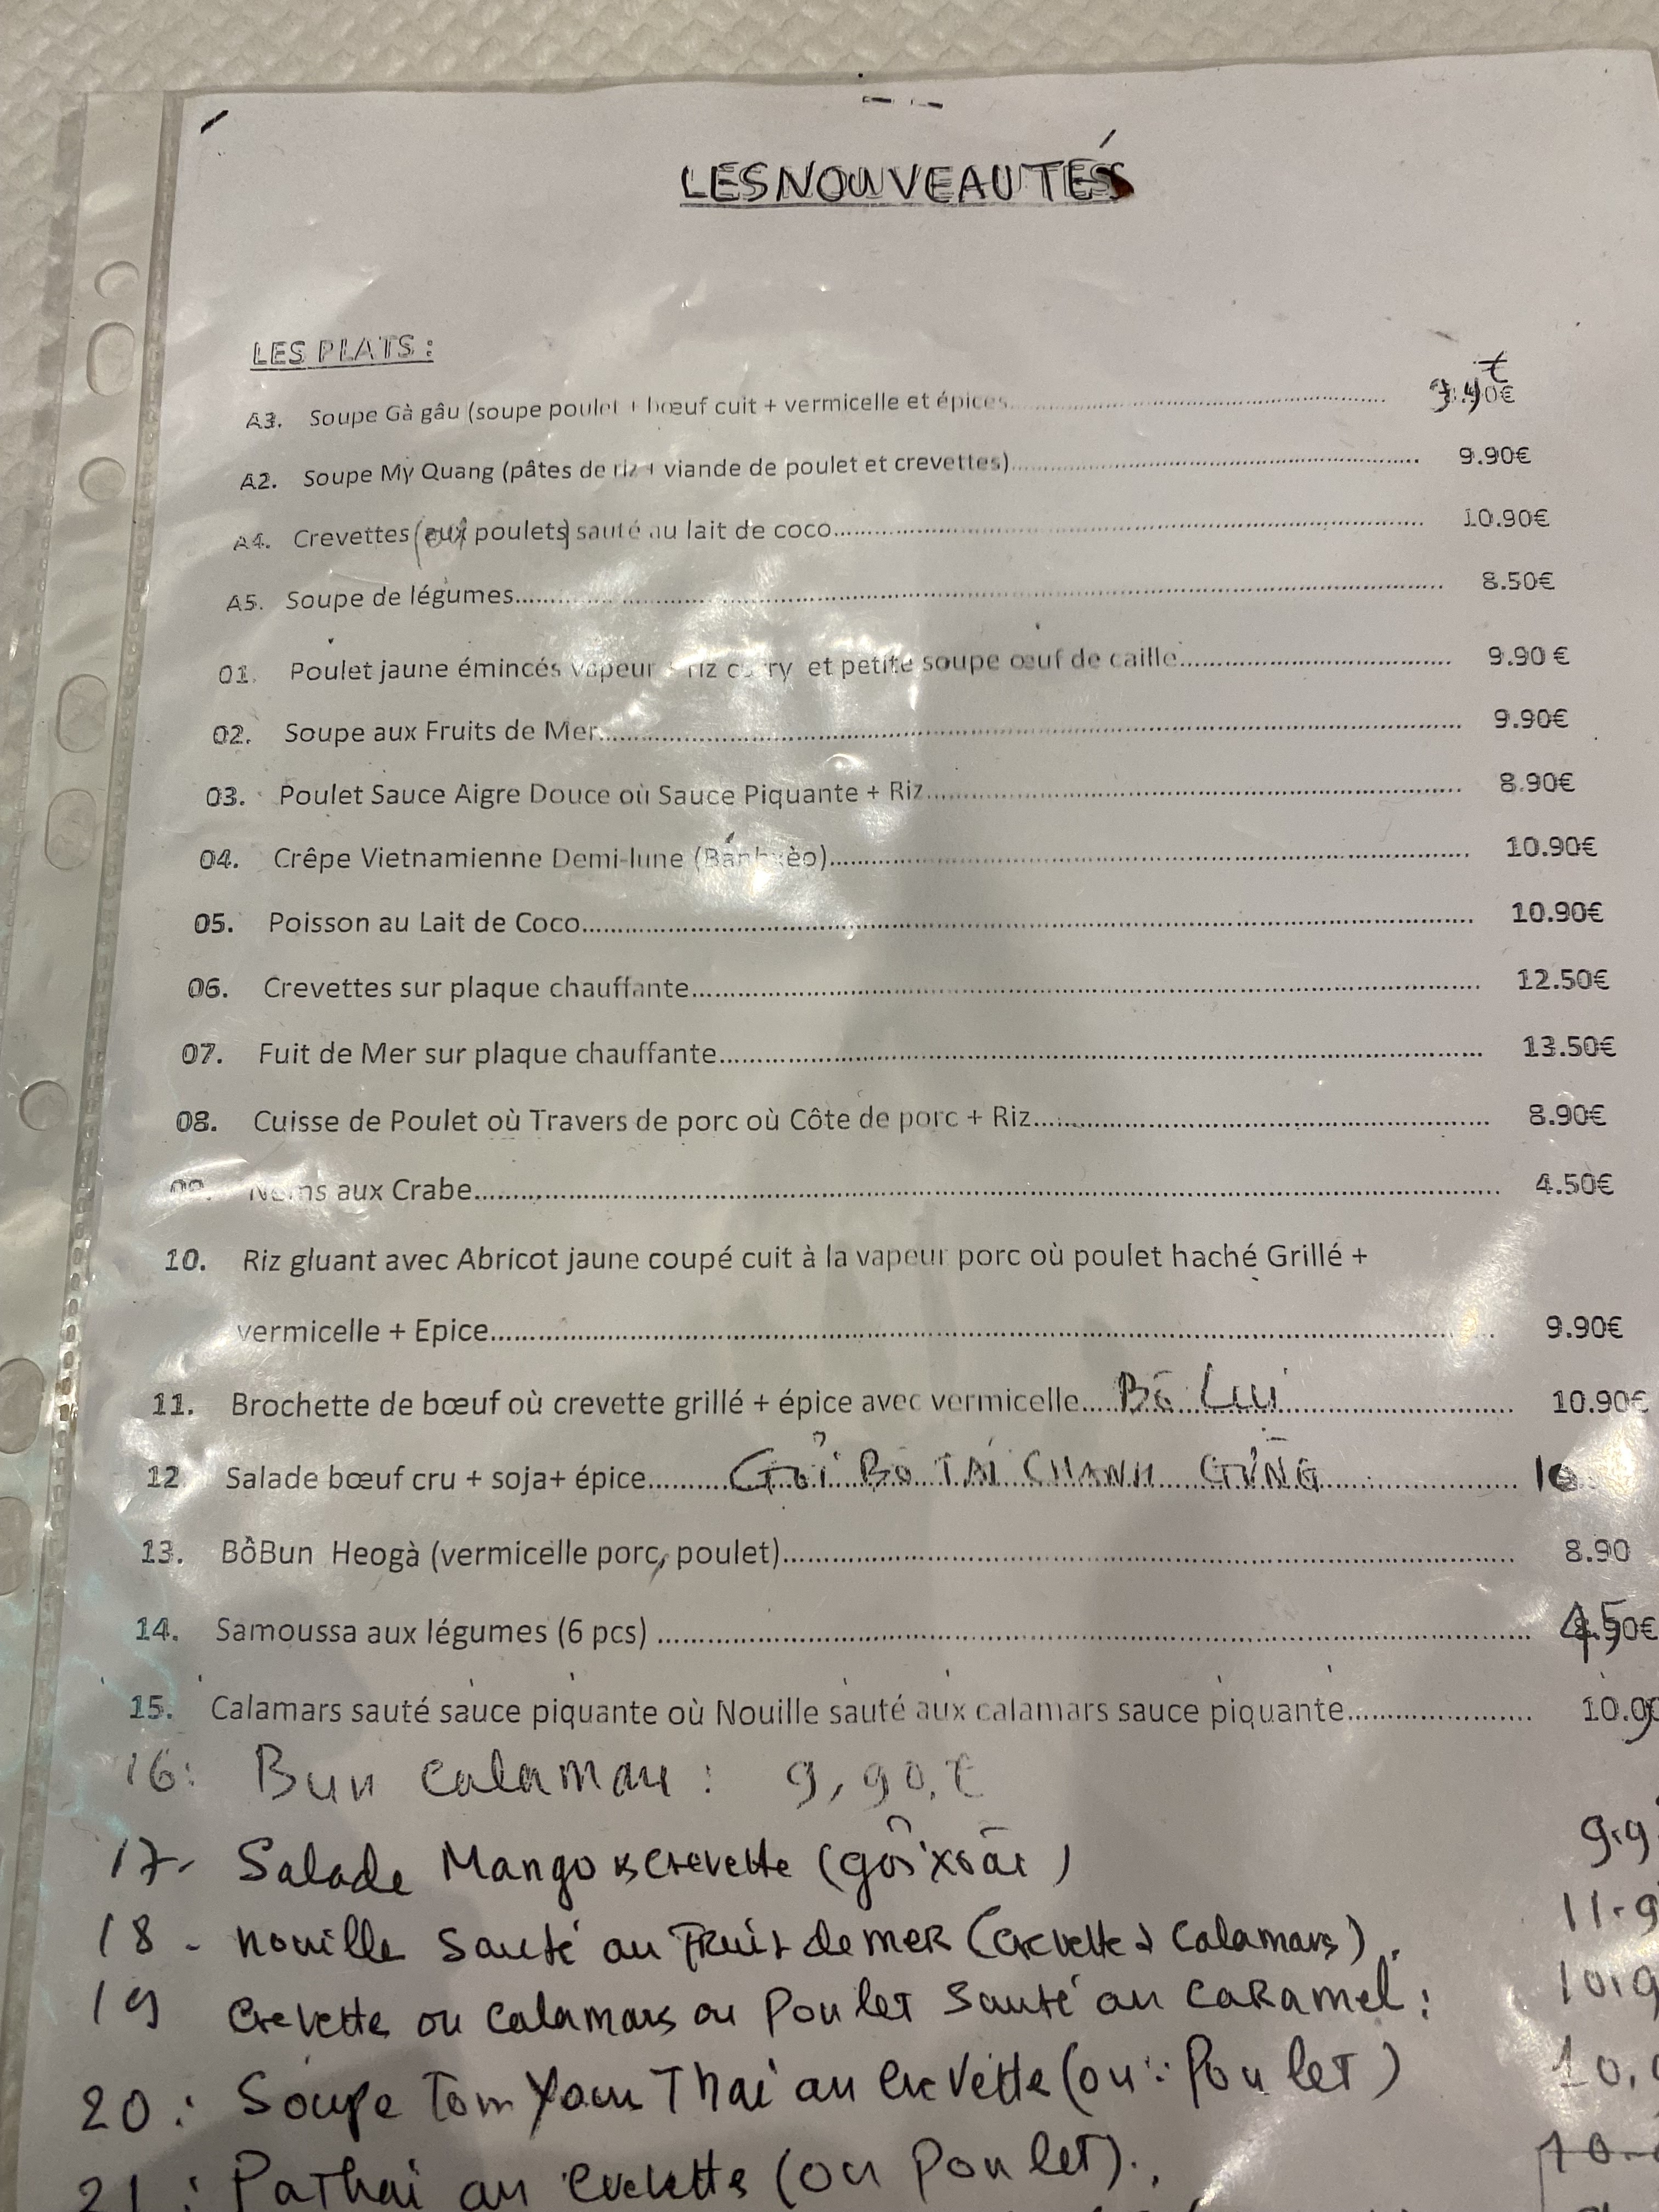 LES NOUVEAUTÉS
LES PLATS :
A3. Soupe Gà gâu (soupe poulet + bœuf cuit + vermicelle et épices
A2. Soupe My Quang (pâtes de riz + viande de poulet et crevettes) 9.90€
A4. Crevettes (aux poulets) sauté au lait de coco 10.90€
A5. Soupe de légumes 8.50€
01. Poulet jaune émincés vapeur + riz curry et petite soupe œuf de caille 9.90 €
02. Soupe aux Fruits de Mer 9.90€
03. Poulet Sauce Aigre Douce où Sauce Piquante + Riz 8.90€
04. Crêpe Vietnamienne Demi-lune (Bánhxèo) 10.90€
05. Poisson au Lait de Coco 10.90€
06. Crevettes sur plaque chauffante 12.50€
07. Fuit de Mer sur plaque chauffante 13.50€
08. Cuisse de Poulet où Travers de porc où Côte de porc + Riz 8.90€
09. Nems aux Crabe 4.50€
10. Riz gluant avec Abricot jaune coupé cuit à la vapeur porc où poulet haché Grillé +
vermicelle + Epice 9.90€
11. Brochette de bœuf où crevette grillé + épice avec vermicelle Bò Lui 10.90€
12. Salade bœuf cru + soja+ épice GỎI BÒ TÁI CHANH GỪNG 10
13. BồBun Heogà (vermicelle porc, poulet) 8.90
14. Samoussa aux légumes (6 pcs)
15. Calamars sauté sauce piquante où Nouille sauté aux calamars sauce piquante
16: Bun calamar : 9,90.€
17- Salade Mango crevette (gỏi xoài) 9.9
18 - nouille sauté au Fruit de mer (crevette calamars). 11.9
19 crevette ou calamars ou Poulet sauté au caramel : 10.9
20 : Soupe Tom Yam Thai au crevette (ou : Poulet) 10.
21 : PaThai au crevette (ou Poulet).